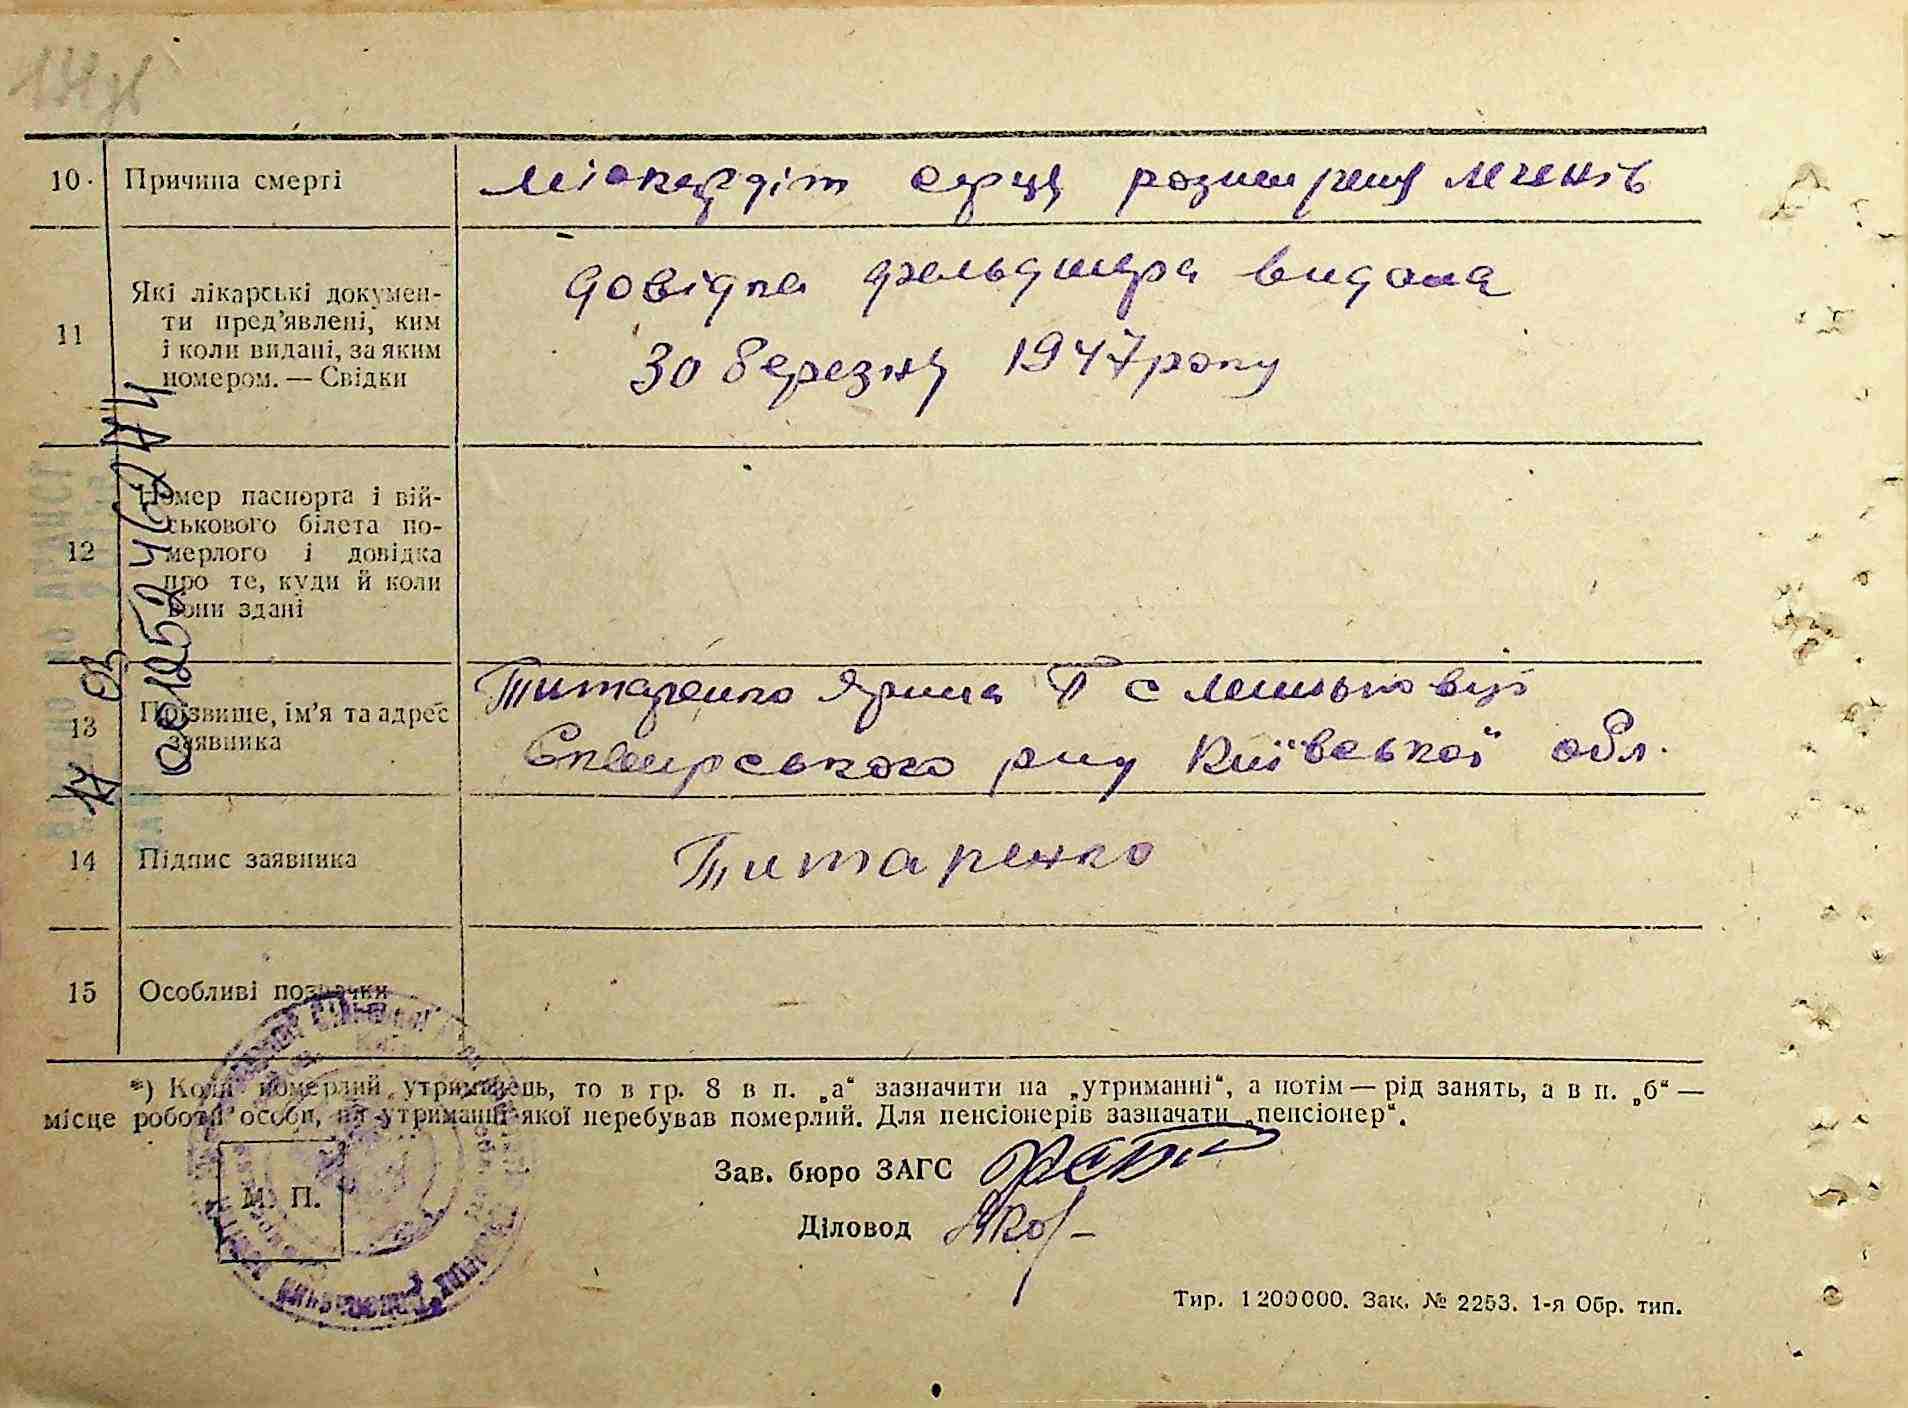 10. Причина смерті
міокардіт серця розширення легенів
11 Які лікарські докумен-
ти пред'явлені, ким
і коли видані, за яким
номером. — Свідки
довідка фельдшера видана
30 березня 1947 року
12 Номер паспорта і вій-
ськового білета по-
мерлого і довідка
про те, куди й коли
вони здані
13 Прізвище, ім'я та адрес
заявника
Титаренко Ярина с
Сквирського р-ну Київської обл.
14 Підпис заявника
Титаренко
15 Особливі позначки
*) Коли померлий утриманець, то в гр. 8 в п. „а“ зазначити на „утриманні“, а потім — рід занять, а в п. „б“ —
місце роботи особи, на утриманні якої перебував померлий. Для пенсіонерів зазначати „пенсіонер“.
Зав. бюро ЗАГС
Діловод
М. П.
Тир. 1200000. Зак. № 2253. 1-я Обр. тип.